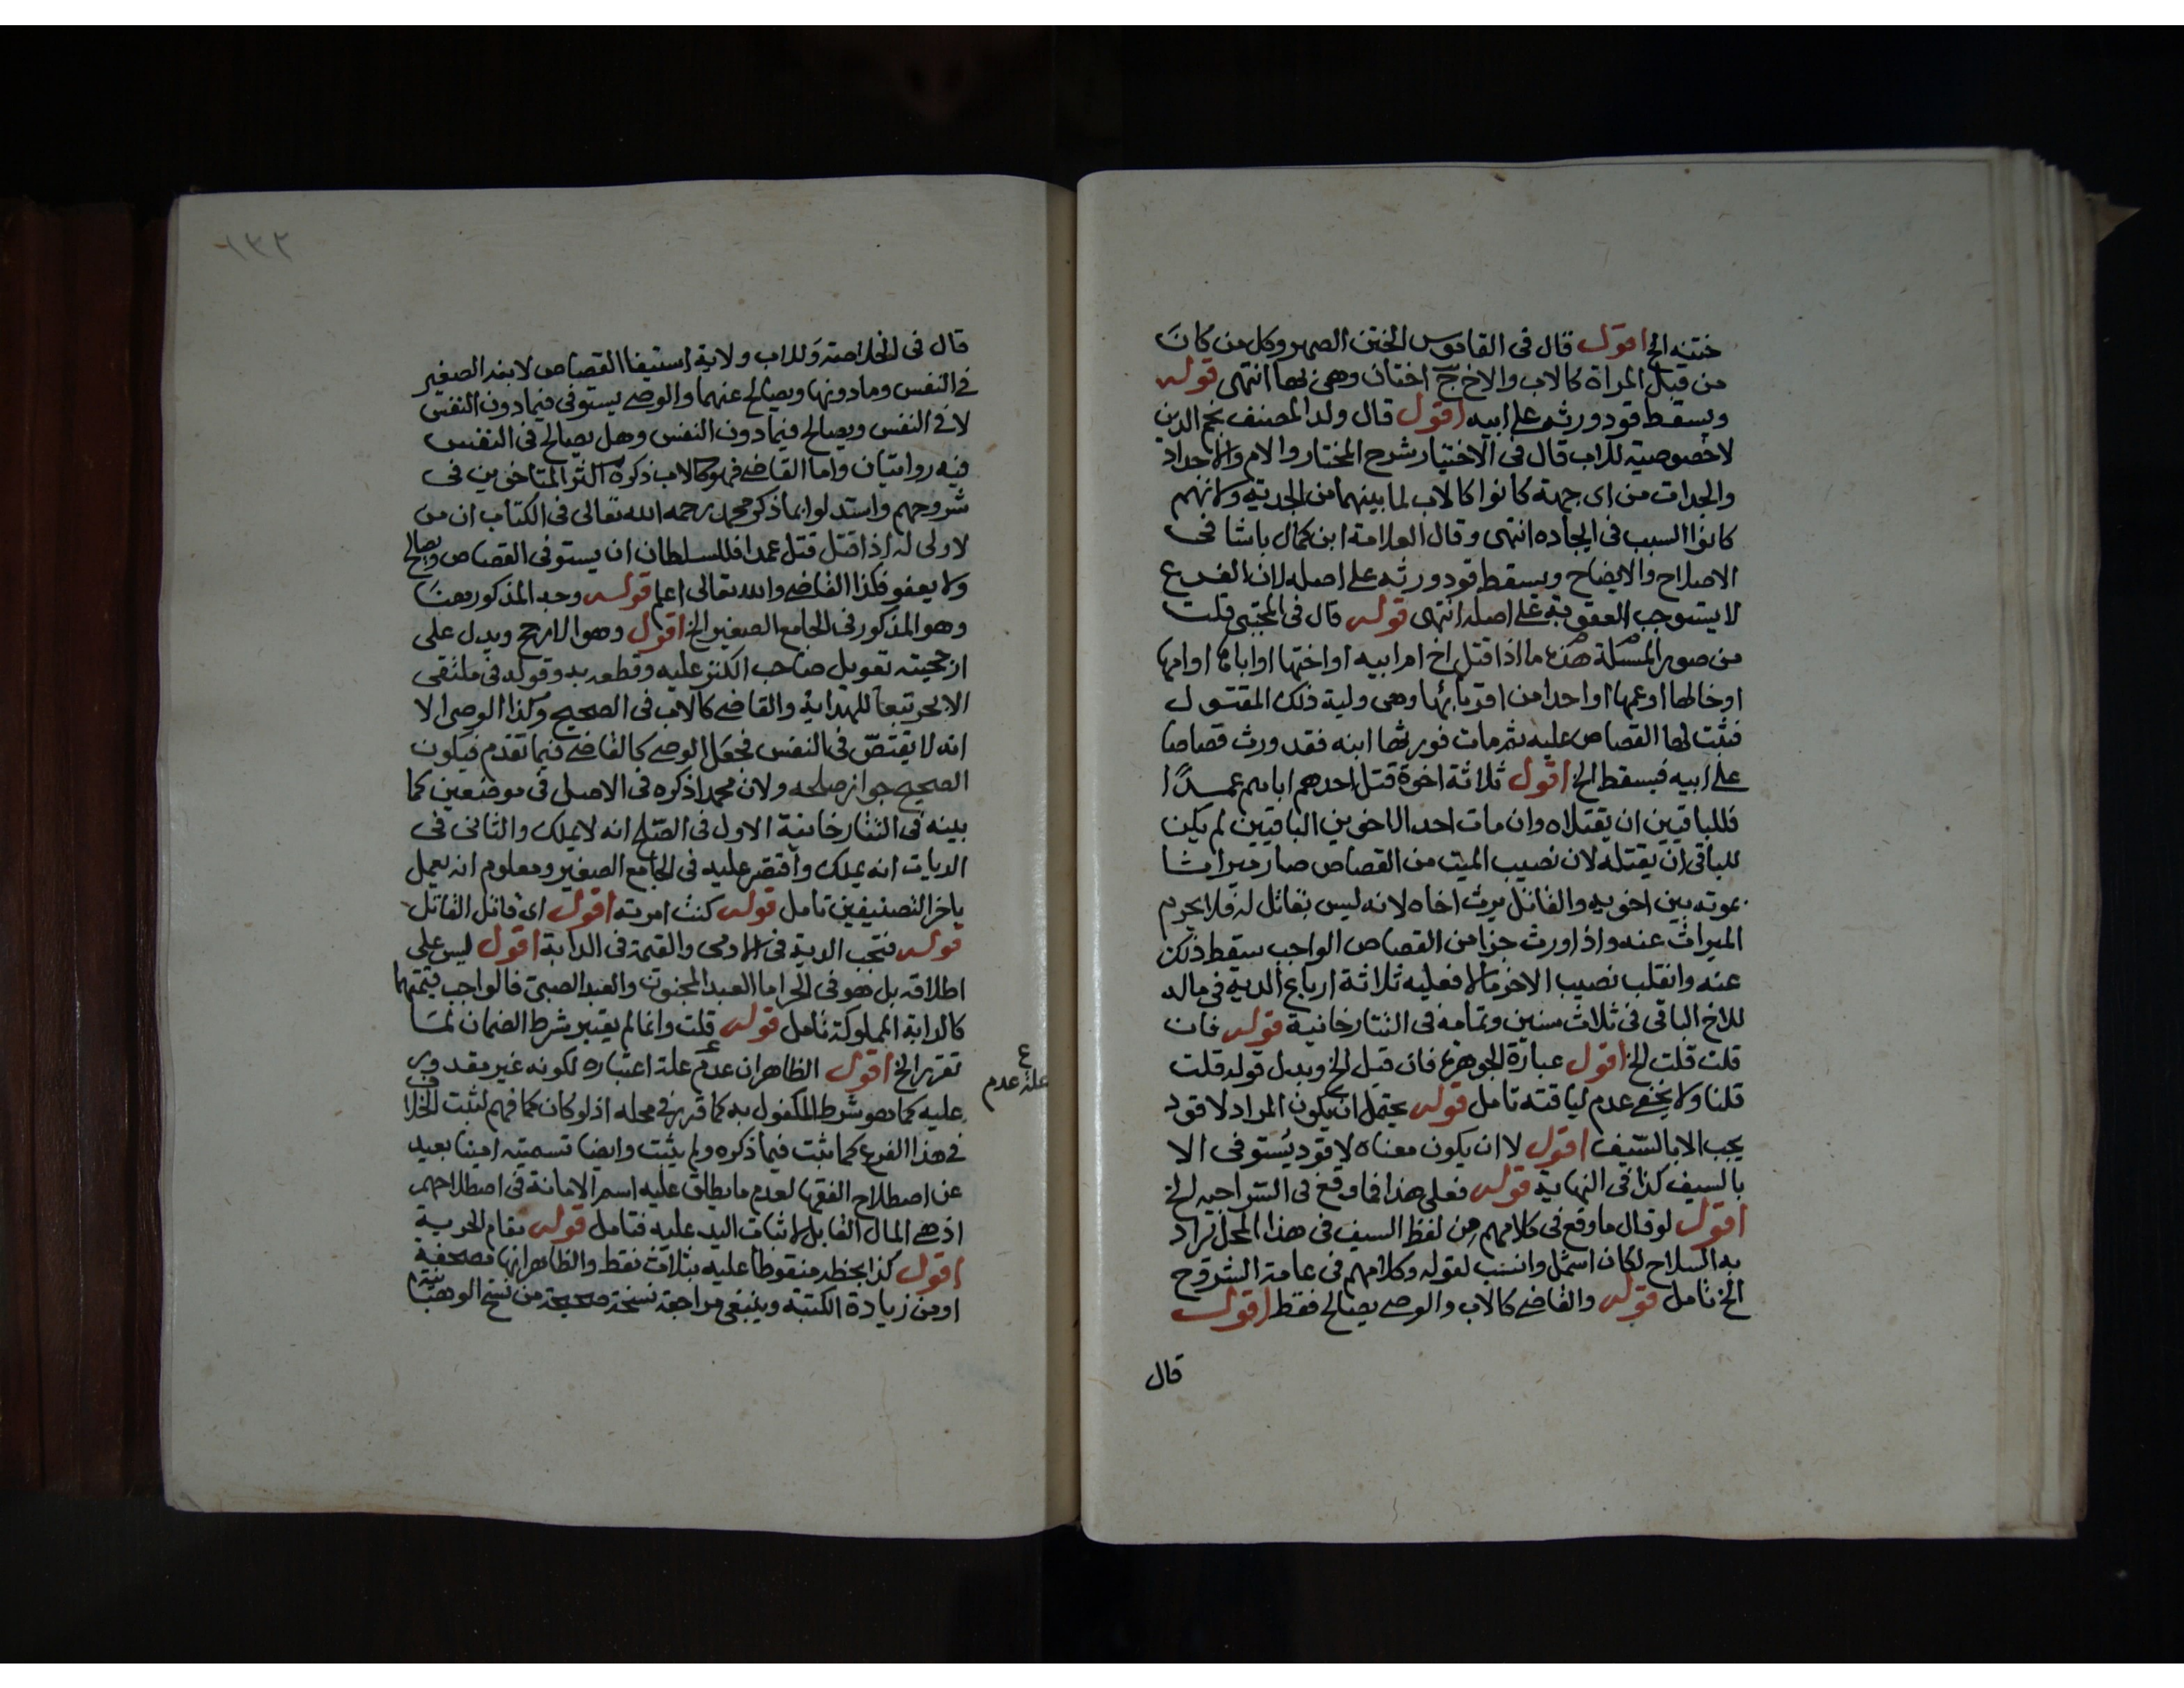 ختنه الخ اقول قال في القاموس الختن الصهر وكل من كان
من قبل المراة كالاب والاخ ج اختان وهي بهاء انتهى قوله
ويسقط قود ورثه على ابيه اقول قال ولد المصنف نجم الدين
لا خصوصية للاب قال في الاختيار شرح المختار والام والاجداد
والجدات من اى جهة كانوا كالاب لما بينهما من الجدية ولانهم
كانوا السبب في ايجاده انتهى وقال العلامة ابن كمال باشا في
الاصلاح والايضاح ويسقط قود ورثه على اصله لان الفرع
لا يستوجب العقوبة على اصله انتهى قوله قال في المجتبى قلت
من صور المسئلة هذه ما اذا قتل اخ امرابيه او اختها او اباها او امها
او خالها او عمها او احدا من اقربائها وهى ولية ذلك المقتول
فثبت لها القصاص عليه ثم مات فورثها ابنه فقد ورث قصاصا
على ابيه فيسقط الخ اقول ثلاثة اخوة قتل احدهم اباهم عمدا
فللباقيين ان يقتلاه وان مات احد الاخوين الباقيين لم يكن
للباقي ان يقتله لان نصيب الميت من القصاص صار ميراثا
بموته بين اخويه والقاتل يرث اخاه لانه ليس بقاتل له فلا يحرم
الميراث عنه واذا ورث جزا من القصاص الواجب سقط ذلك
عنه وانقلب نصيب الاخر مالا فعليه ثلاثة ارباع الدية في ماله
للاخ الباقي في ثلاث سنين وتمامه في التتارخانية قوله فان
قلت قلت الخ اقول عبارة الجوهرة فان قيل الخ وبدل قوله قلت
قلنا ولا يخفى عدم لياقته تامل قوله يحتمل ان يكون المراد لا قود
يجب الا بالسيف اقول لا ان يكون معناه لا قود يستوفى الا
بالسيف كذا في النهاية قوله فعلى هذا فما وقع في السراجيه الخ
اقول لو قال ما وقع في كلامهم من لفظ السيف في هذا المحل يراد
به السلاح لكان اشمل وانسب لقوله وكلامهم في عامة الشروح
الخ تامل قوله والقاضي كالاب والوصي يصالح فقط اقول
قال
١٣٢
قال في الخلاصة وللاب ولاية استيفا القصاص لابنه الصغير
في النفس وما دونها ويصالح عنهما والوصي يستوفى فيما دون النفس
لا في النفس ويصالح فيما دون النفس وهل يصالح في النفس
فيه روايتان واما القاضي فهو كالاب ذكره اكثر المتاخرين في
شروحهم واستدلوا بما ذكر محمد رحمه الله تعالى في الكتاب ان من
لا ولى له اذا قتل قتل عمدا فللسلطان ان يستوفى القصاص ويصالح
ولا يعفو فكذا القاضي والله تعالى اعلم قوله وجه المذكور هنا
وهو المذكور في الجامع الصغير الخ اقول وهو الارجح ويدل على
ارجحيته تعويل صاحب الكنز عليه وقطعه به وقوله في ملتقى
الابحر تبعا للهداية والقاضي كالاب في الصحيح وكذا الوصى الا
انه لا يقتص في النفس فجعل الوصي كالقاضي فيما تقدم فيكون
الصحيح جواز صلحه ولان محمدا ذكره في الاصل في موضعين كما
بينه في التتارخانية الاول في الصلح انه لا يملك والثاني في
الديات انه يملك واقتصر عليه في الجامع الصغير ومعلوم انه يعمل
باخر التصنيفين تامل قوله كنت امرته اقول اى قاتل القاتل
قوله فتجب الدية في الادمى والقيمة في الدابة اقول ليس على
اطلاقه بل هو في الحر اما العبد المجنون والعبد الصبي فالواجب قيمتهما
كالدابة المملوكة تامل قوله قلت وانما لم يعتبر شرط الضمان لما
تقرر الخ اقول الظاهر ان عدم علة اعتباره لكونه غير مقدور
ع علة عدم
عليه كما هو شرط المكفول به كما قرر في محله اذ لو كان كما فهم لثبت الخلاف
في هذا الفرع كما ثبت فيما ذكره ولم يثبت وايضا تسميته امينا بعيد
عن اصطلاح الفقها لعدم ما يطلق عليه اسم الامانة في اصطلاحهم
اذ هي المال القابل لاثبات اليد عليه فتامل قوله تقام الحرية
اقول كذا بخطه منقوطا عليه بثلاث نقط والظاهر انها مصحفة
او من زيادة الكتبة وينبغى مراجعة نسخة صحيحة من نسخ الوهبانية